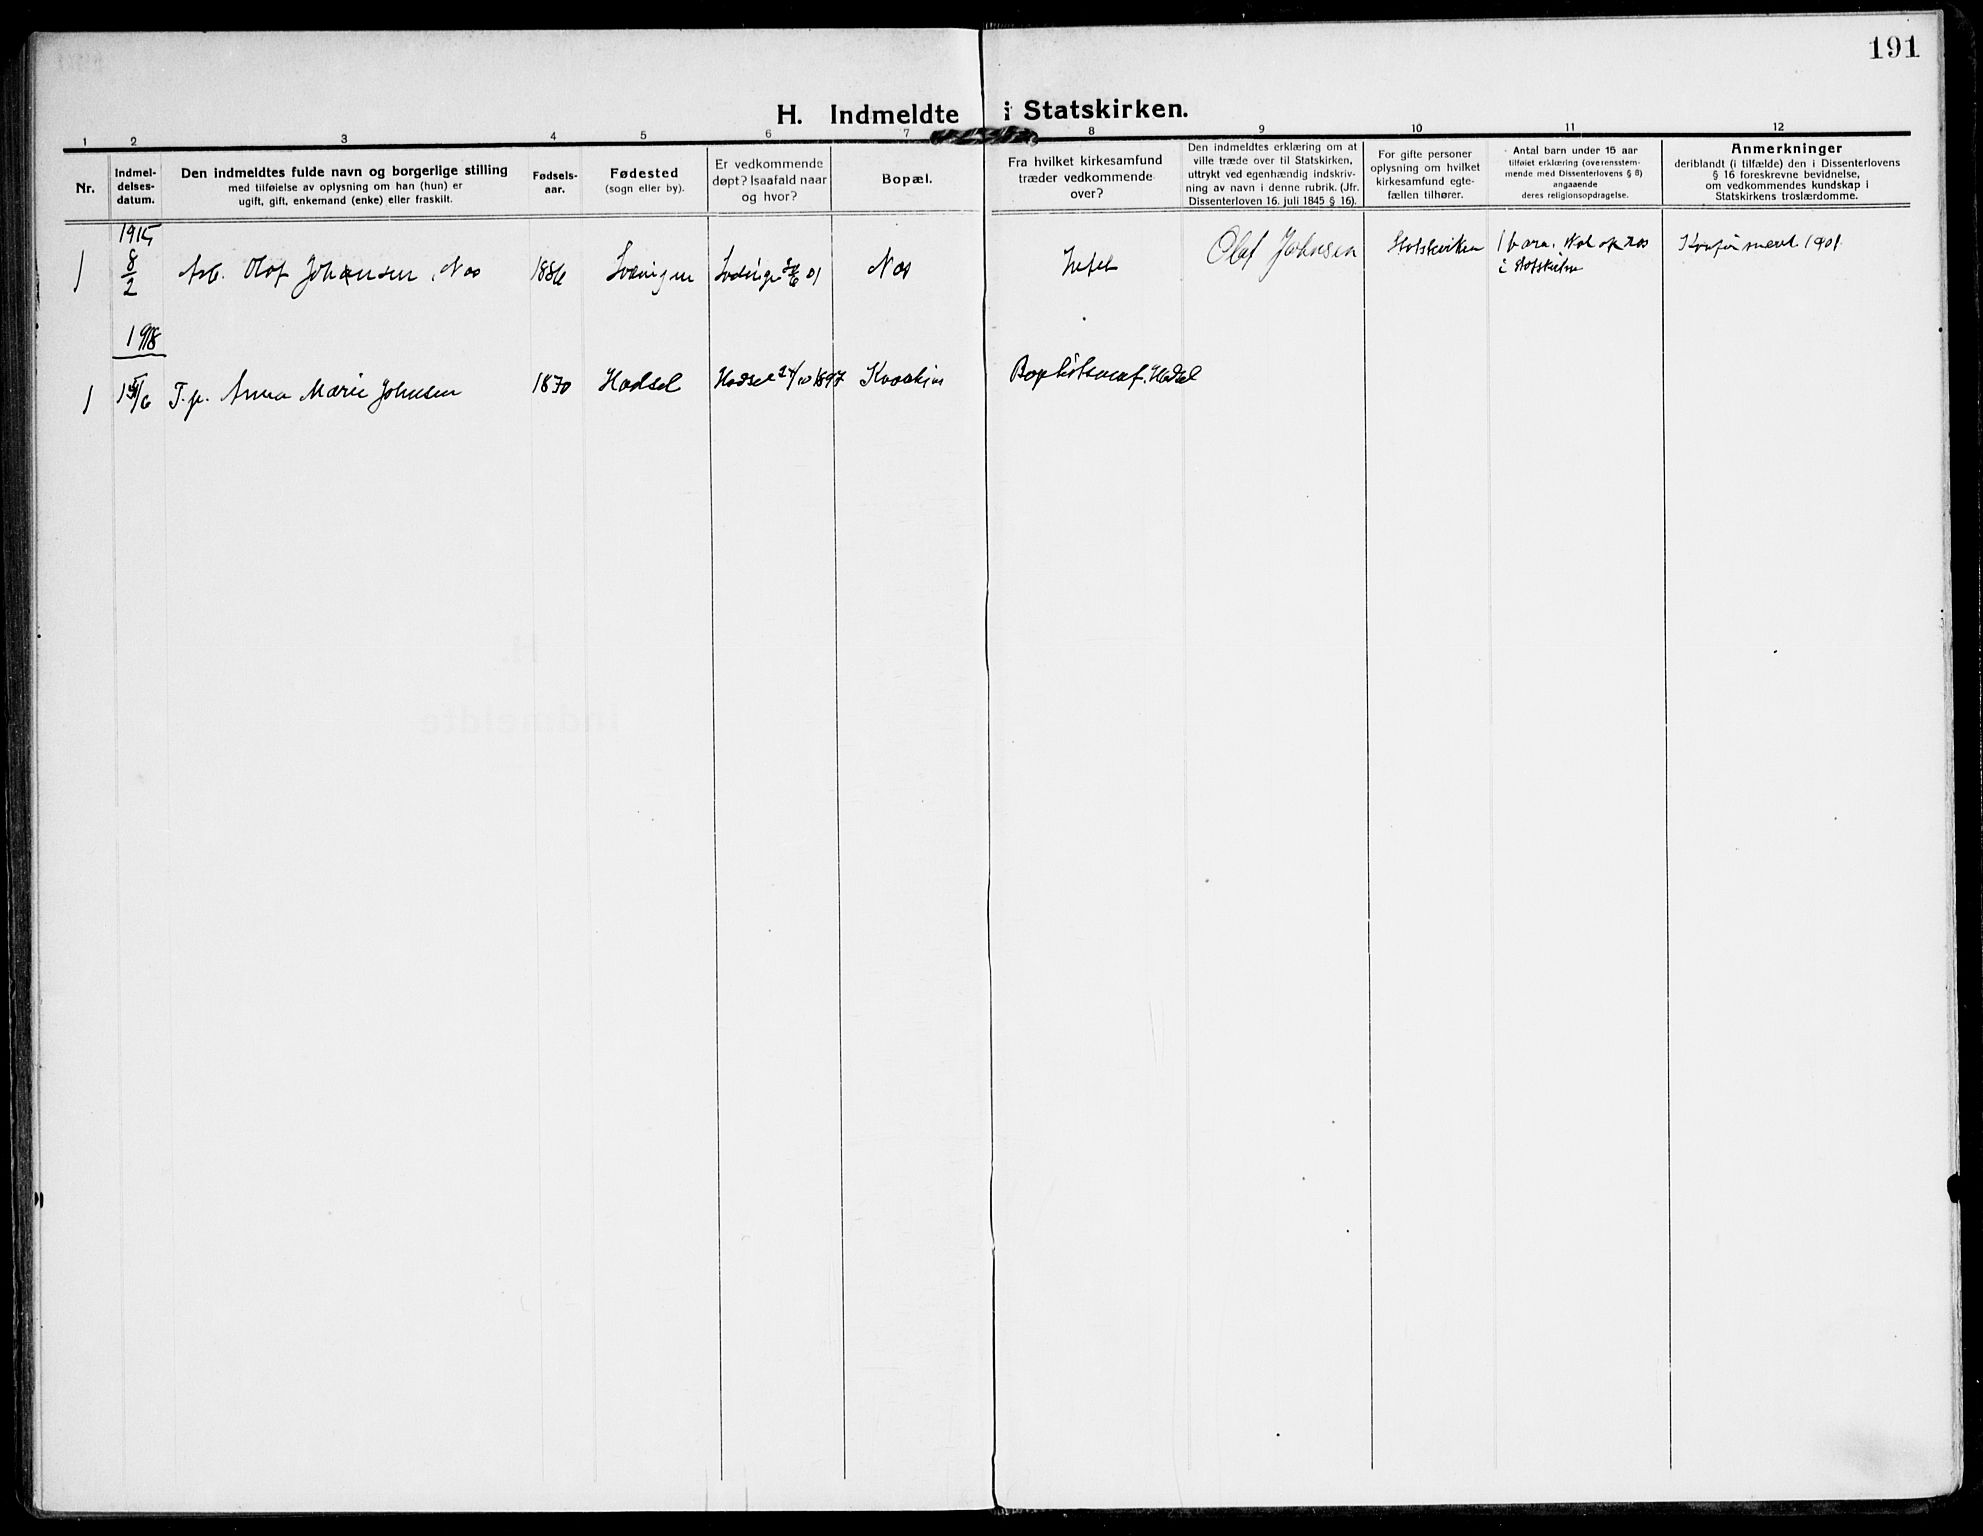 191
H. Indmeldte i Statskirken.
1 2 3 4 5 6 7 8 9 10 11 12
Nr.
Indmel-
delses-
datum.
Den indmeldtes fulde navn og borgerlige stilling
med tilføielse av oplysning om han (hun) er
ugift, gift, enkemand (enke) eller fraskilt.
Fødsels-
aar.
Fødested
(sogn eller by).
Er vedkommende
døpt? Isaafald naar
og hvor?
Bopæl.
Fra hvilket kirkesamfund
træder vedkommende
over?
Den indmeldtes erklæring om at
ville træde over til Statskirken,
uttrykt ved egenhændig indskriv-
ning av navn i denne rubrik. (Jfr.
Dissenterloven 16. juli 1845 § 16).
For gifte personer
oplysning om hvilket
kirkesamfund egte-
fællen tilhører.
Antal barn under 15 aar
tilføiet erklæring (overensstem-
mende med Dissenterlovens § 8)
angaaende
deres religionsopdragelse.
Anmerkninger
deriblandt (i tilfælde) den i Dissenterlovens
§ 16 foreskrevne bevidnelse,
om vedkommendes kundskap i
Statskirkens troslærdomme.
1915
1 8/2 Arb. Olof Johansen, Nes 1886 Lødingen Lødingen 01 Nes
Olaf Johnsen Statskirken 1 barn. Skal opdras
i Statskirken
Konfirmert 1901
1918
1 T.p. Anna Marie Johnsen 1870 Hadsel Hadsel 1897 Hadsel